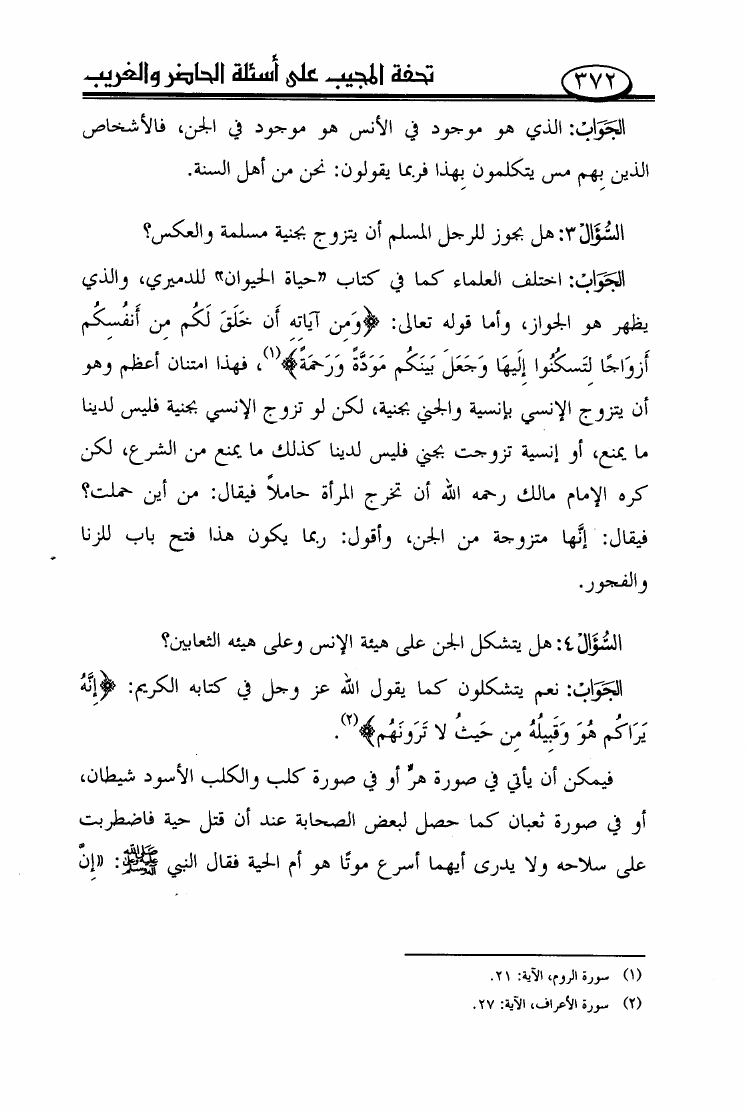 ٣٧٢ تحفة المجيب على أسئلة الحاضر والغريب
الجَوَابْ: الذي هو موجود في الأنس هو موجود في الجن، فالأشخاص
الذين بِهم مس يتكلمون بِهذا فربما يقولون: نحن من أهل السنة.
السُّؤَالْ ٣: هل يجوز للرجل المسلم أن يتزوج بجنية مسلمة والعكس؟
الجَوَابْ: اختلف العلماء كما في كتاب "حياة الحيوان" للدميري، والذي
يظهر هو الجواز، وأما قوله تعالى: ﴿وَمِن آيَاتِهِ أَن خَلَقَ لَكُم مِن أَنفُسِكُم
أَزوَاجًا لِتَسكُنُوا إِلَيهَا وَجَعَلَ بَينَكُم مَوَدَّةً وَرَحمَةً﴾(١)، فهذا امتنان أعظم وهو
أن يتزوج الإنسي بإنسية والجني بجنية، لكن لو تزوج الإنسي بجنية فليس لدينا
ما يمنع، أو إنسية تزوجت بجني فليس لدينا كذلك ما يمنع من الشرع، لكن
كره الإمام مالك رحمه الله أن تخرج المرأة حاملاً فيقال: من أين حملت؟
فيقال: إنَّها متزوجة من الجن، وأقول: ربما يكون هذا فتح باب للزنا
والفجور.
السُّؤَالْ ٤: هل يتشكل الجن على هيئة الإنس وعلى هيئه الثعابين؟
الجَوَابْ: نعم يتشكلون كما يقول الله عز وجل في كتابه الكريم: ﴿إِنَّهُ
يَرَاكُم هُوَ وَقَبِيلُهُ مِن حَيثُ لا تَرَونَهُم﴾(٢).
فيمكن أن يأتي في صورة هرٍّ أو في صورة كلب والكلب الأسود شيطان،
أو في صورة ثعبان كما حصل لبعض الصحابة عند أن قتل حية فاضطربت
على سلاحه ولا يدرى أيهما أسرع موتًا هو أم الحية فقال النبي ﷺ: «إِنَّ
(١) سورة الروم، الآية: ٢١.
(٢) سورة الأعراف، الآية: ٢٧.